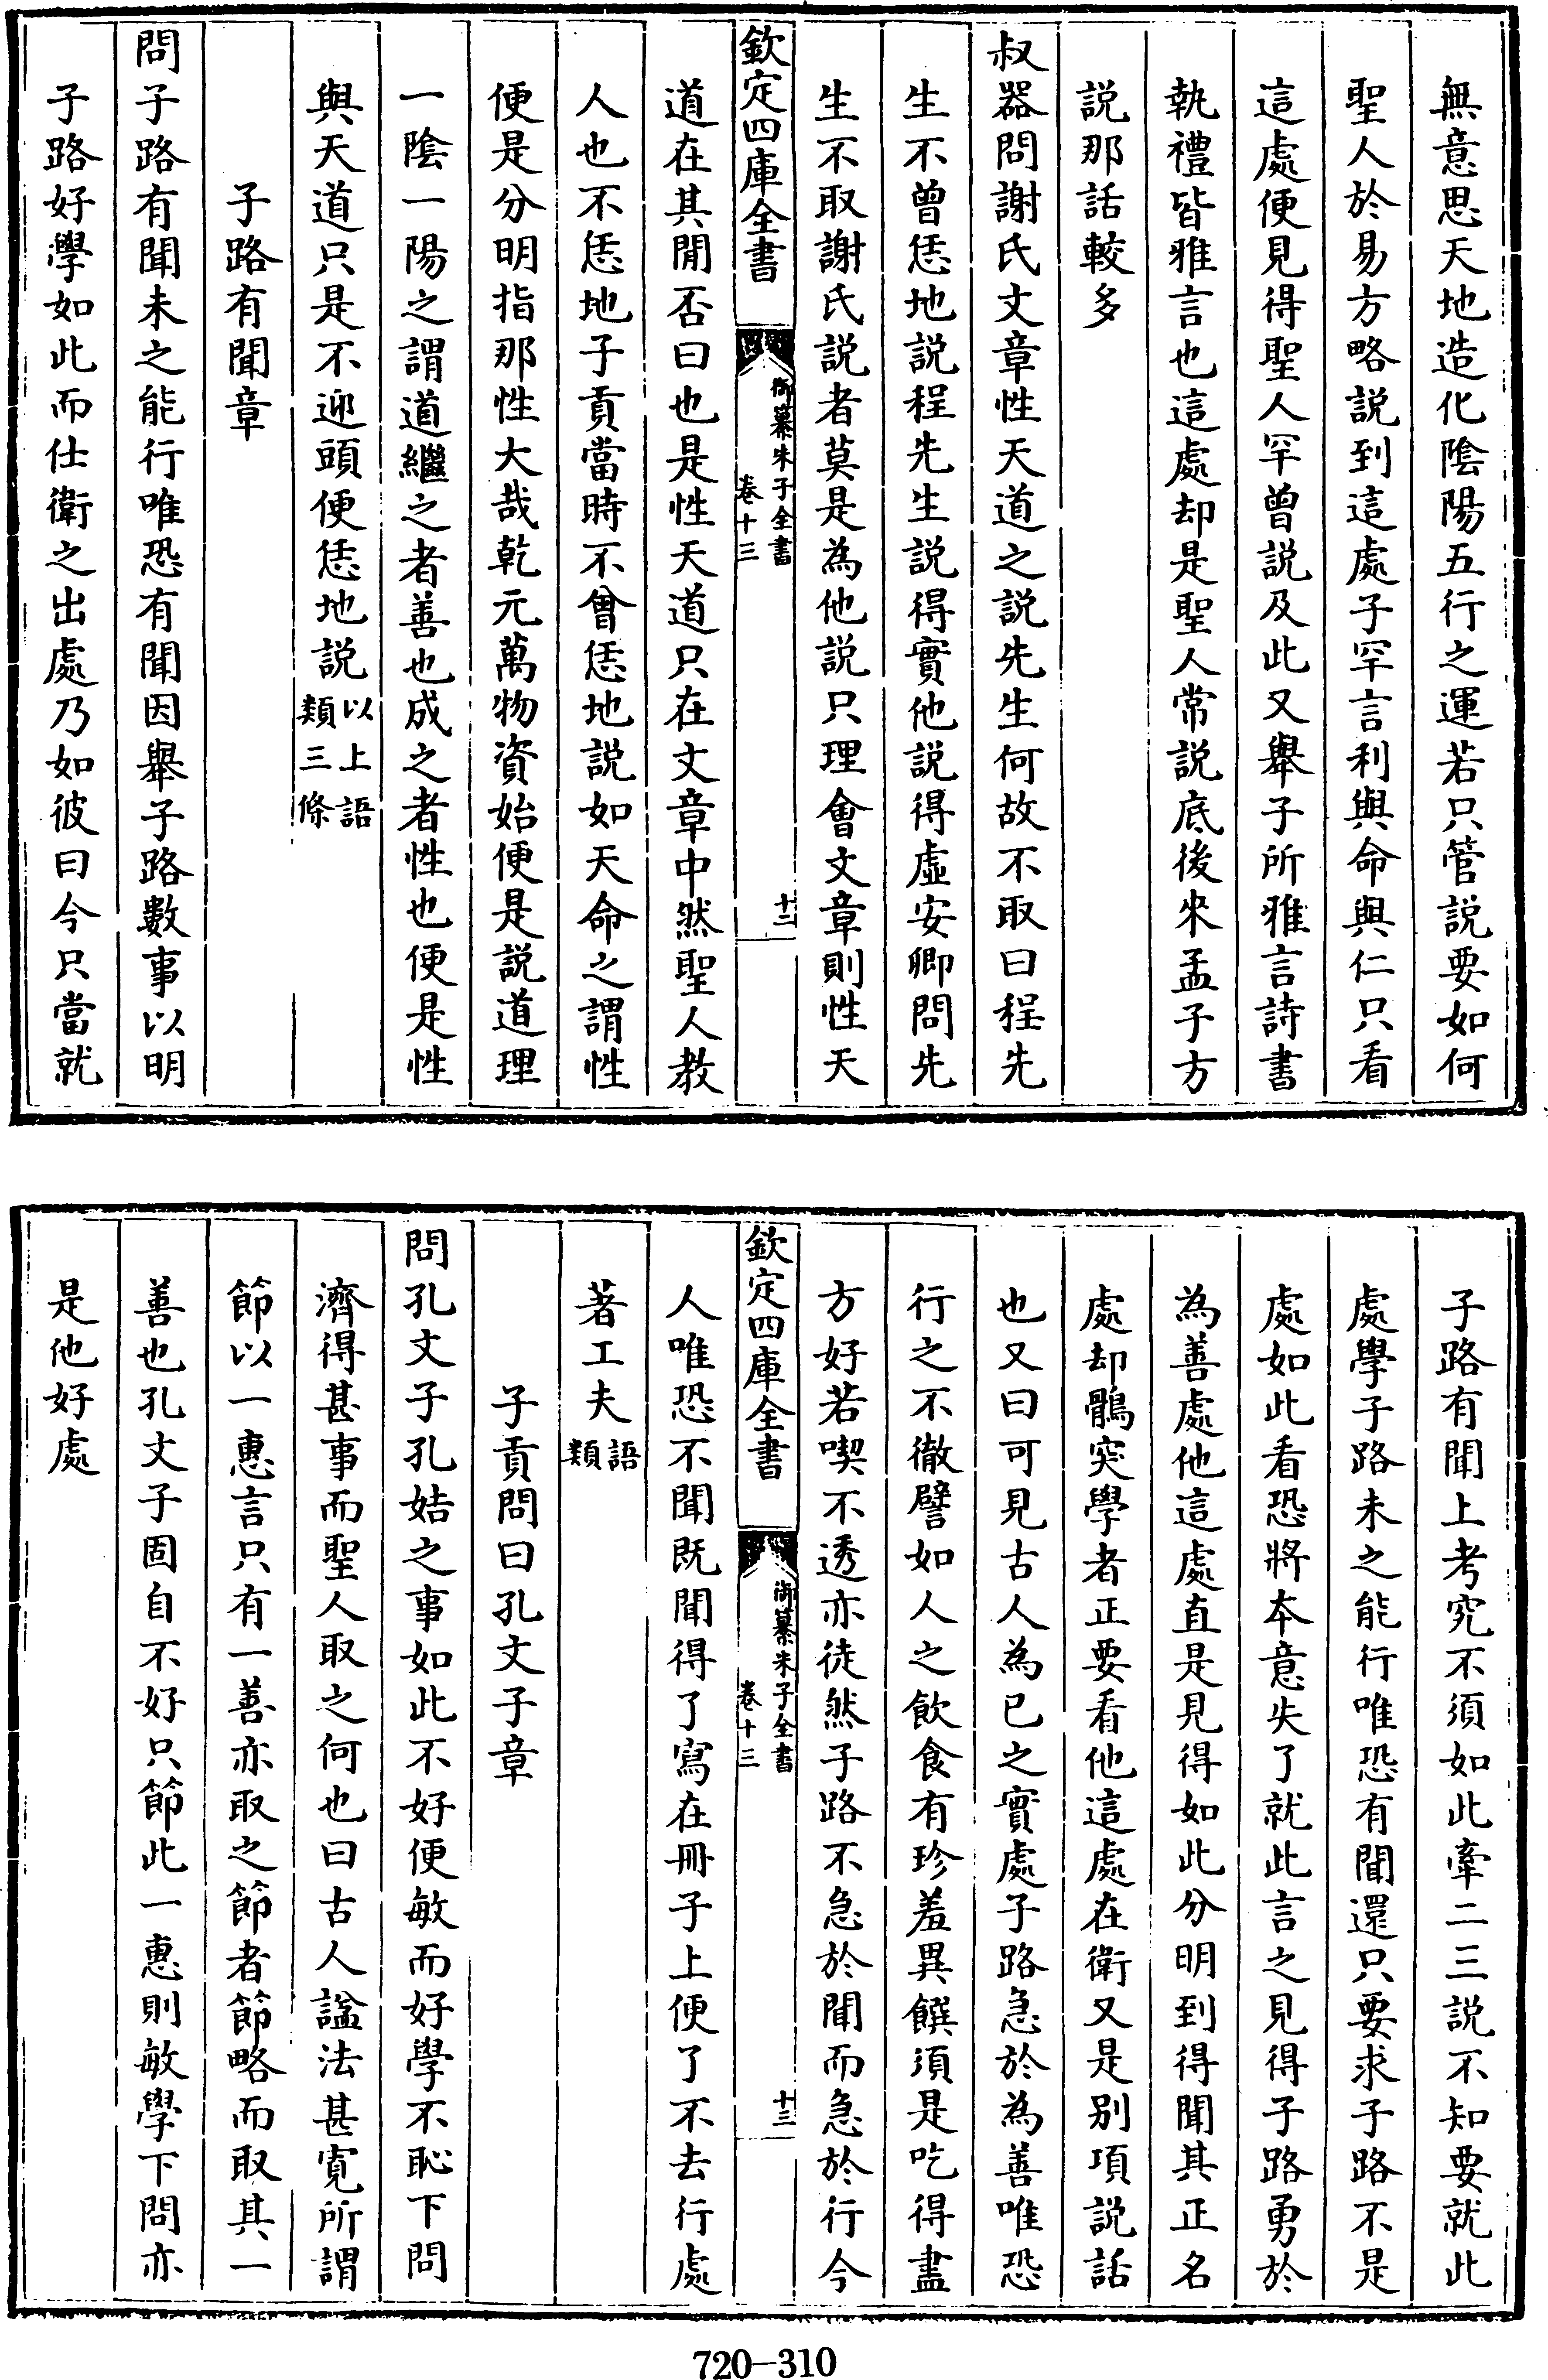 無意思天地造化陰陽五行之運若只管説要如何
聖人於易方略説到這處子罕言利與命與仁只看
這處便見得聖人罕曾説及此又舉子所雅言詩書
執禮皆雅言也這處却是聖人常説底後來孟子方
説那話較多
叔器問謝氏文章性天道之説先生何故不取曰程先
生不曾恁地説程先生説得實他説得虛安卿問先
生不取謝氏説者莫是為他説只理會文章則性天
欽定四庫全書
御纂朱子全書
卷十三
十二
道在其間否曰也是性天道只在文章中然聖人教
人也不恁地子貢當時不曾恁地説如天命之謂性
便是分明指那性大哉乾元萬物資始便是説道理
一陰一陽之謂道繼之者善也成之者性也便是性
與天道只是不迎頭便恁地説以上語
類三條
子路有聞章
問子路有聞未之能行唯恐有聞因舉子路數事以明
子路好學如此而仕衛之出處乃如彼曰今只當就
子路有聞上考究不須如此牽二三説不知要就此
處學子路未之能行唯恐有聞還只要求子路不是
處如此看恐將本意失了就此言之見得子路勇於
為善處他這處直是見得如此分明到得聞其正名
處却鶻突學者正要看他這處在衛又是别項説話
也又曰可見古人為已之實處子路急於為善唯恐
行之不徹譬如人之飲食有珍羞異饌須是吃得盡
方好若喫不透亦徒然子路不急於聞而急於行今
欽定四庫全書
御纂朱子全書
卷十三
十三
人唯恐不聞既聞得了寫在冊子上便了不去行處
著工夫語
類
子貢問曰孔文子章
問孔文子孔姞之事如此不好便敏而好學不恥下問
濟得甚事而聖人取之何也曰古人諡法甚寛所謂
節以一惠言只有一善亦取之節者節略而取其一
善也孔文子固自不好只節此一惠則敏學下問亦
是他好處
720-310